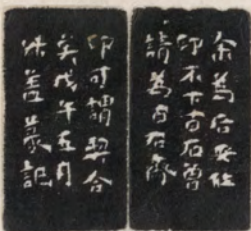 余為石安作
印不下百石曾
為百石齋
印可謂契合
矣戊午五月
善篆記